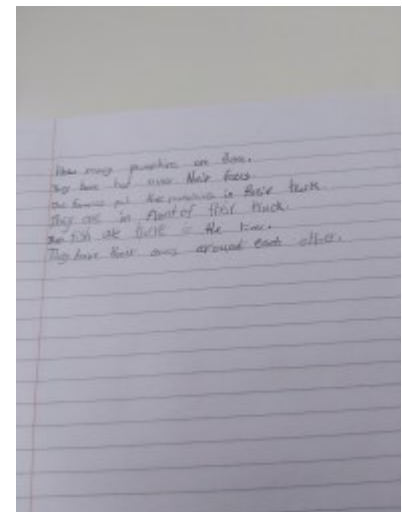 How many pumpkins are there.
They have hay over their faces.
the farmers put the pumpkins in their truck
They are in front of their truck.
the fish are there is the
They have their arms around each other.